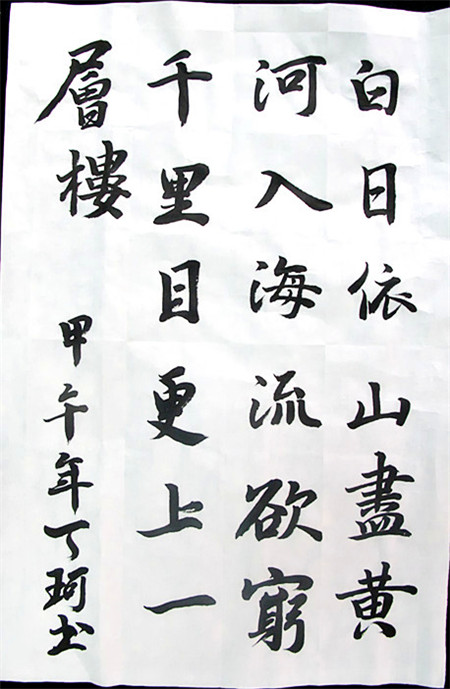 白日依山盡黄
河入海流欲窮
千里目更上一
層樓
甲午年丁珂书